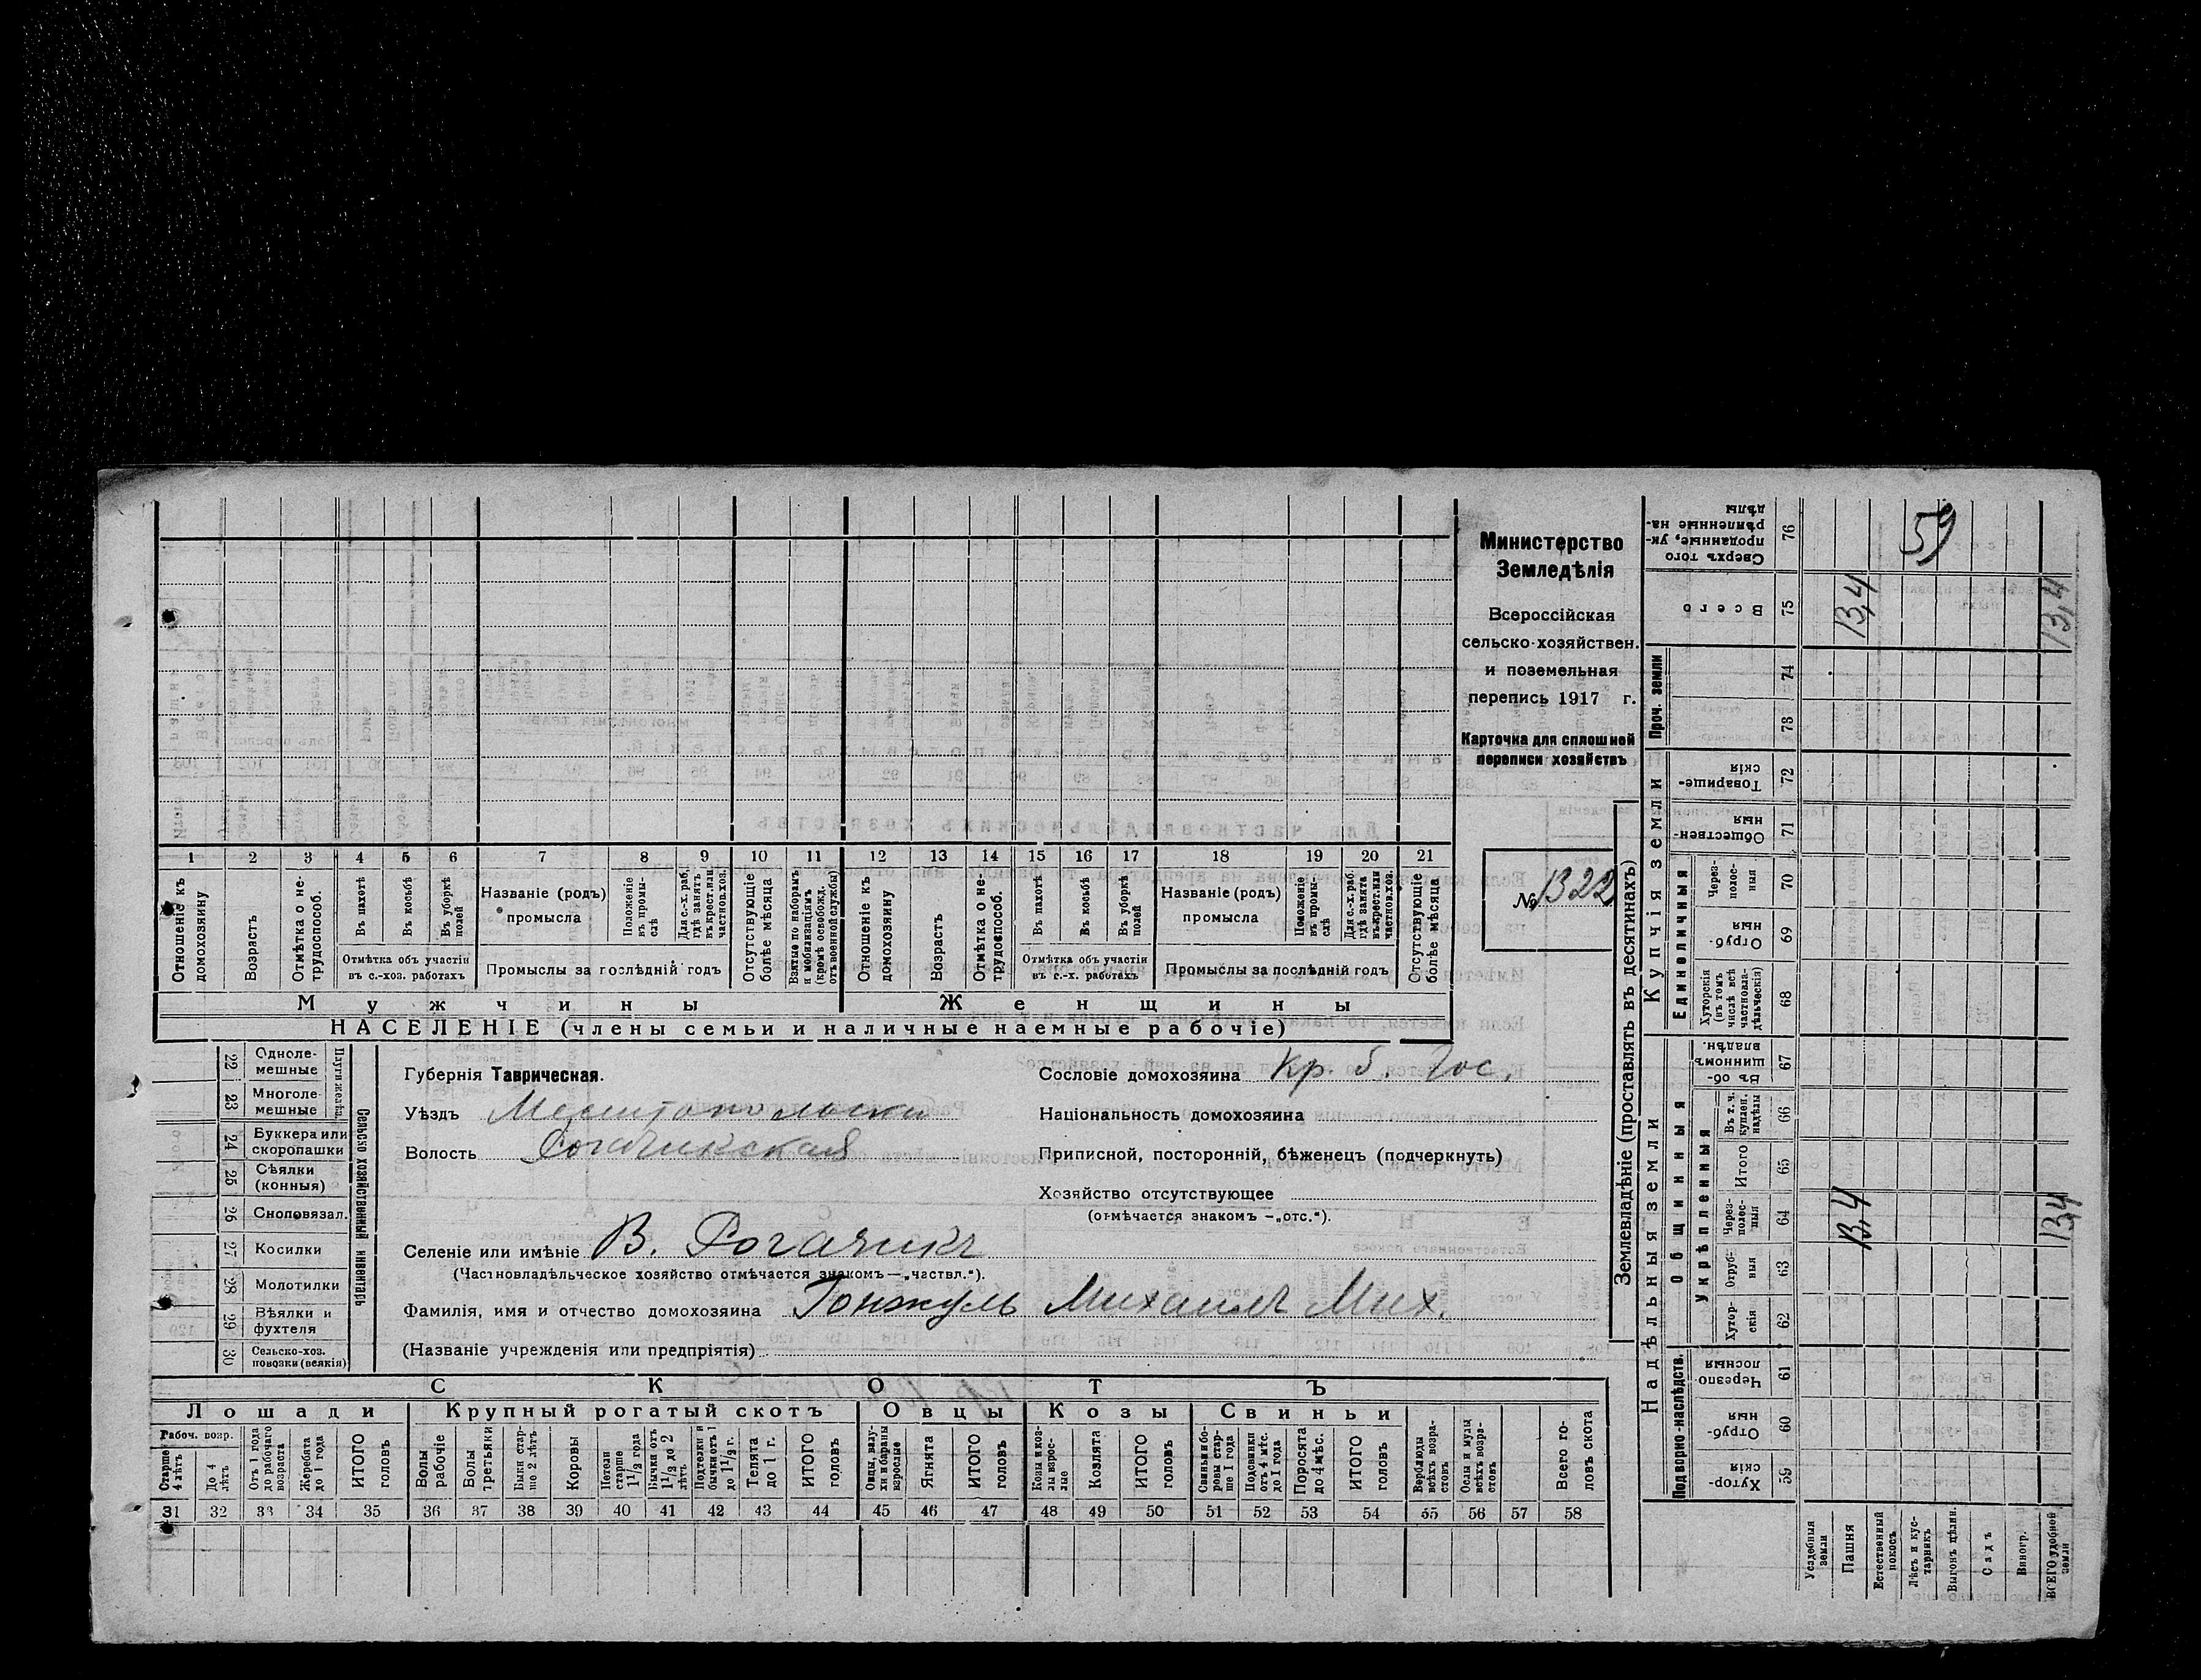 Министерство
Земледѣлія
Всероссійская
сельско-хозяйствен.
и поземельная
перепись 1917 г.
Карточка для сплошной
переписи хозяйствъ
№ 1322
1 2 3 4 5 6 7 8 9 10 11 12 13 14 15 16 17 18 19 20 21
Отношеніе къ домохозяину
Возрастъ
Отмѣтка о не-трудоспособ.
Въ пахотѣ
Въ косьбѣ
Въ уборкѣ полей
Отмѣтка объ участіи
въ с.-хоз. работахъ
Названіе (родъ)
промысла
Положеніе въ промы-слѣ
Для с.-х. раб. гдѣ занятъ въ крест. или частнов. хоз.
Промыслы за послѣдній годъ
Отсутствующіе болѣе мѣсяца
Взятые по наборамъ и мобилизаціямъ (кромѣ освобожд. отъ военной службы)
Отношеніе къ домохозяину
Возрастъ
Отмѣтка о не-трудоспособ.
Въ пахотѣ
Въ косьбѣ
Въ уборкѣ полей
Отмѣтка объ участіи
въ с.-х. работахъ
Названіе (родъ)
промысла
Положеніе въ промы-слѣ
Для с.-х. раб. гдѣ занята въ крест. или частнов. хоз.
Промыслы за послѣдній годъ
Отсутствующіе болѣе мѣсяца
Мужчины Женщины
НАСЕЛЕНІЕ (члены семьи и наличные наемные рабочіе)
22 Одноле-мешные
23 Многоле-мешные
Плуги желѣз.
24 Буккера или скоропашки
25 Сѣялки (конныя)
26 Сноповязал.
27 Косилки
28 Молотилки
29 Вѣялки и фухтеля
30 Сельско-хоз. повозки (всякія)
Сельско хозяйственный инвентарь
Губернія Таврическая.
Уѣздъ Мелитопольскій
Волость Рогачикская
Селеніе или имѣніе В. Рогачикъ
(Частновладѣльческое хозяйство отмѣчается знакомъ—„частвл.“).
Фамилія, имя и отчество домохозяина Гонжуль Михаилъ Мих.
(Названіе учрежденія или предпріятія)
Сословіе домохозяина Кр. б. Гос.
Національность домохозяина
Приписной, посторонній, бѣженецъ (подчеркнуть)
Хозяйство отсутствующее
(отмѣчается знакомъ —„отс.“).
СКОТЪ
Лошади Крупный рогатый скотъ Овцы Козы Свиньи
Рабоч. возр.
Старше 4 лѣтъ
До 4 лѣтъ
Отъ 1 года до рабочаго возраста
Жеребята до 1 года
ИТОГО головъ
Волы рабочіе
Волы третьяки
Быки стар-ше 2 лѣтъ
Коровы
Нетели старше 1½ года
Бычки отъ 1½ до 2 лѣтъ
Подтелки и бычки отъ 1 до 1½ г.
Телята до 1 г.
ИТОГО головъ
Овцы, валу-хи и бараны взрослые
Ягнята
ИТОГО головъ
Козы и коз-лы взрос-лые
Козлята
ИТОГО головъ
Свиньи и бо-ровы стар-ше 1 года
Подсвинки отъ 4 мѣс. до 1 года
Поросята до 4 мѣс.
ИТОГО головъ
Верблюды всѣхъ возра-стовъ
Ослы и мулы всѣхъ возра-стовъ
Всего го-ловъ скота
31 32 33 34 35 36 37 38 39 40 41 42 43 44 45 46 47 48 49 50 51 52 53 54 55 56 57 58
Землевладѣніе (проставлять въ десятинахъ)
Надѣльныя земли Купчія земли
Подворно-наслѣдств.
Общинныя
Укрѣпленныя
Единоличныя
Проч. земли
Сверхъ того проданные, ук-рѣпленные на-дѣлы 76 59
Всего 75 13,4 13,4
74
73
Товарище-скія 72
Обществен-ныя 71
Через-полос-ныя 70
Отруб-ныя 69
Хуторскія (въ томъ числѣ всѣ частновла-дѣльческія) 68
Въ об-щинномъ владѣн. 67
Въ т. ч. куплен. надѣлы 66
Итого 65
Через-полос-ныя 64 13,4 13,4
Отруб-ныя 63
Хутор-скія 62
Черезпо-лосныя 61
Отруб-ныя 60
Хутор-скія 59
Усадебныя земли
Пашня
Естественный покосъ
Лѣсъ и кус-тарникъ
Выгонъ цѣлин.
Садъ
Виногр.
ВСЕГО удобной земли